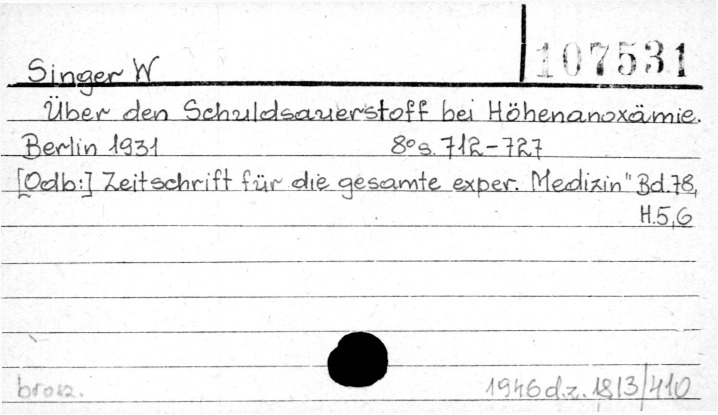 107531
Singer W
Über den Schuldsauerstoff bei Höhenanoxämie.
Berlin 1931 8° s. 712-727
[Odb:] Zeitschrift für die gesamte exper. Medizin" Bd. 78,
H. 5,6
brosz. 1946 d.z. 1813/410